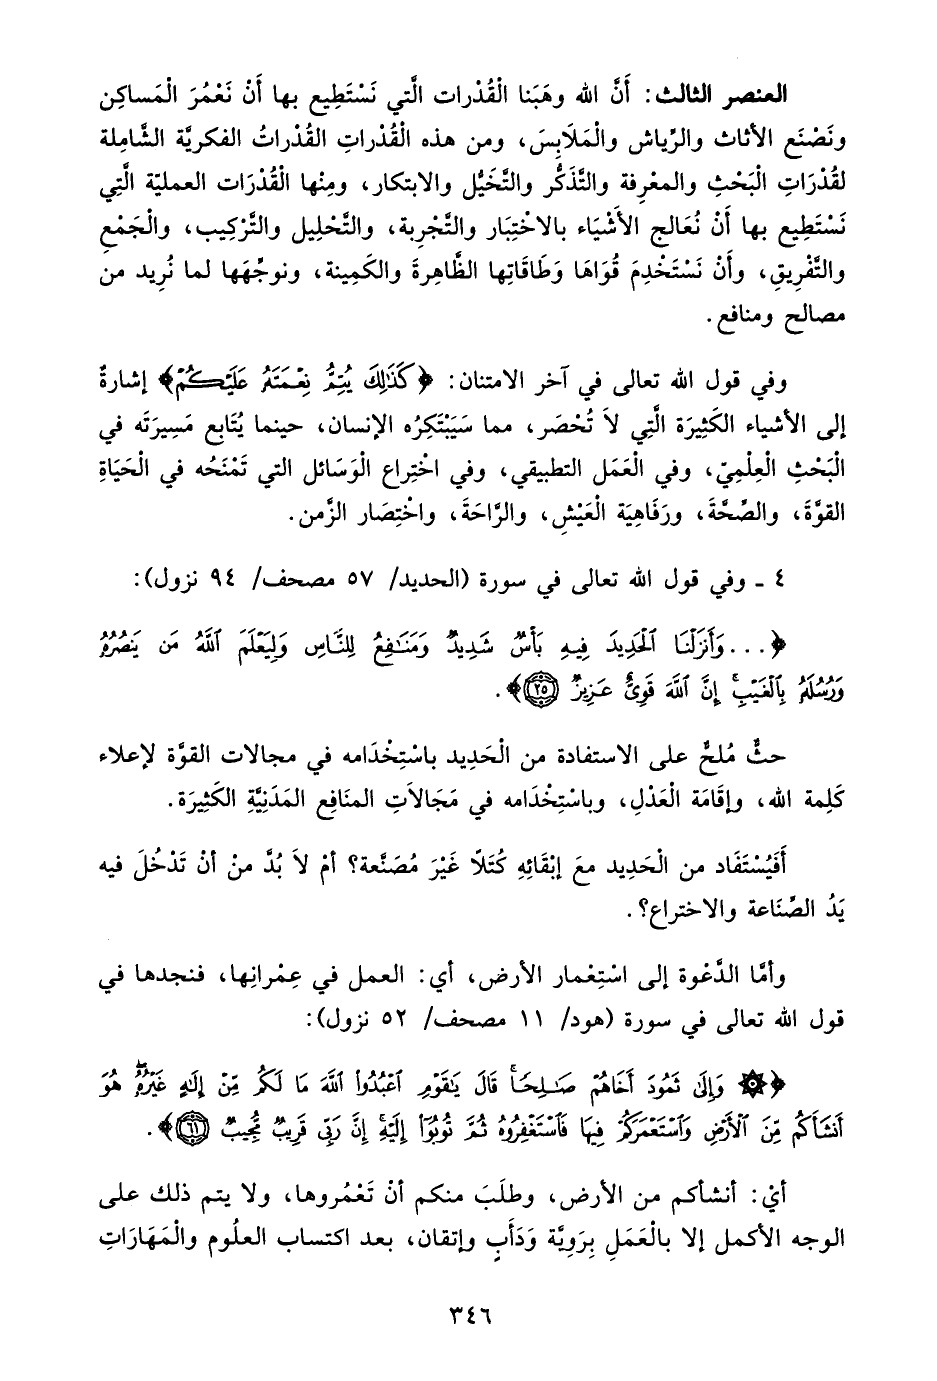 العنصر الثالث: أَنَّ الله وهَبَنا الْقُدْرات الَّتي نَسْتَطِيع بها أَنْ نَعْمُرَ الْمَساكِن
ونَصْنَع الأثاث والرِّياش والْمَلَابِسَ، ومن هذه الْقُدْراتِ القُدْراتُ الفكريَّة الشَّامِلة
لقُدْرَاتِ الْبَحْثِ والمعْرِفة والتَّذَكُّر والتَّخَيُّل والابتكار، ومِنْها الْقُدْرَات العمليّة الَّتِي
نَسْتَطِيع بها أَنْ نُعَالج الأَشْيَاء بالاخْتِبَار والتَّجْرِبة، والتَّحْلِيل والتَّرْكِيب، والْجَمْعِ
والتَّفْرِيقِ، وأَنْ نَسْتَخْدِمَ قُوَاهَا وَطَاقَاتِها الظَّاهِرةَ والكَمِينة، ونوجِّهَها لما نُرِيد من
مصالح ومنافع.
وفي قول الله تعالى في آخر الامتنان: ﴿كَذَٰلِكَ يُتِمُّ نِعْمَتَهُۥ عَلَيْكُمْ﴾ إشارةٌ
إلى الأشياء الكَثِيرَة الَّتِي لاَ تُحْصَر، مما سَيَبْتَكِرُه الإنسان، حينما يُتَابع مَسِيرَتَه في
الْبَحْثِ الْعِلْمِيّ، وفي الْعَمَل التطبيقي، وفي اخْتِراع الْوَسَائل التي تَمْنَحُه في الْحَيَاةِ
القوَّةَ، والصِّحَّةَ، ورَفَاهِيَة الْعَيْشِ، والرَّاحَةَ، واخْتِصَار الزَّمن.
٤ ـ وفي قول الله تعالى في سورة (الحديد/ ٥٧ مصحف/ ٩٤ نزول):
﴿...وَأَنزَلْنَا ٱلْحَدِيدَ فِيهِ بَأْسٌ شَدِيدٌ وَمَنَـٰفِعُ لِلنَّاسِ وَلِيَعْلَمَ ٱللَّهُ مَن يَنصُرُهُۥ
وَرُسُلَهُۥ بِٱلْغَيْبِ ۚ إِنَّ ٱللَّهَ قَوِىٌّ عَزِيزٌ ٢٥﴾.
حثٌّ مُلحٌّ على الاستفادة من الْحَدِيد باسْتِخْدَامه في مجالات القوَّة لإعلاء
كَلِمة الله، وإقَامَة الْعَدْلِ، وباسْتِخْدَامه في مَجَالاَتِ المنَافِع المَدَنِيَّةِ الكَثِيرَة.
أَفَيُسْتَفَاد من الْحَدِيد معَ إبْقَائِهِ كُتَلًا غَيْرَ مُصَنَّعة؟ أمْ لاَ بُدَّ منْ أنْ تَدْخُلَ فيه
يَدُ الصِّنَاعة والاختراع؟.
وأمَّا الدَّعْوة إلى اسْتِعْمار الأرض، أي: العمل في عِمْرانِها، فنجدها في
قول الله تعالى في سورة (هود/ ١١ مصحف/ ٥٢ نزول):
﴿۞ وَإِلَىٰ ثَمُودَ أَخَاهُمْ صَـٰلِحًا ۚ قَالَ يَـٰقَوْمِ ٱعْبُدُوا۟ ٱللَّهَ مَا لَكُم مِّنْ إِلَـٰهٍ غَيْرُهُۥ ۖ هُوَ
أَنشَأَكُم مِّنَ ٱلْأَرْضِ وَٱسْتَعْمَرَكُمْ فِيهَا فَٱسْتَغْفِرُوهُ ثُمَّ تُوبُوٓا۟ إِلَيْهِ ۚ إِنَّ رَبِّى قَرِيبٌ مُّجِيبٌ ٦١﴾.
أيْ: أنشأكم من الأرض، وطلَبَ منكم أنْ تَعْمُروها، ولا يتم ذلك على
الوجه الأكمل إلا بالْعَمَلِ بِرَوِيَّة وَدَأَبٍ وإتقان، بعد اكتساب العلُوم والْمَهَارَاتِ
٣٤٦